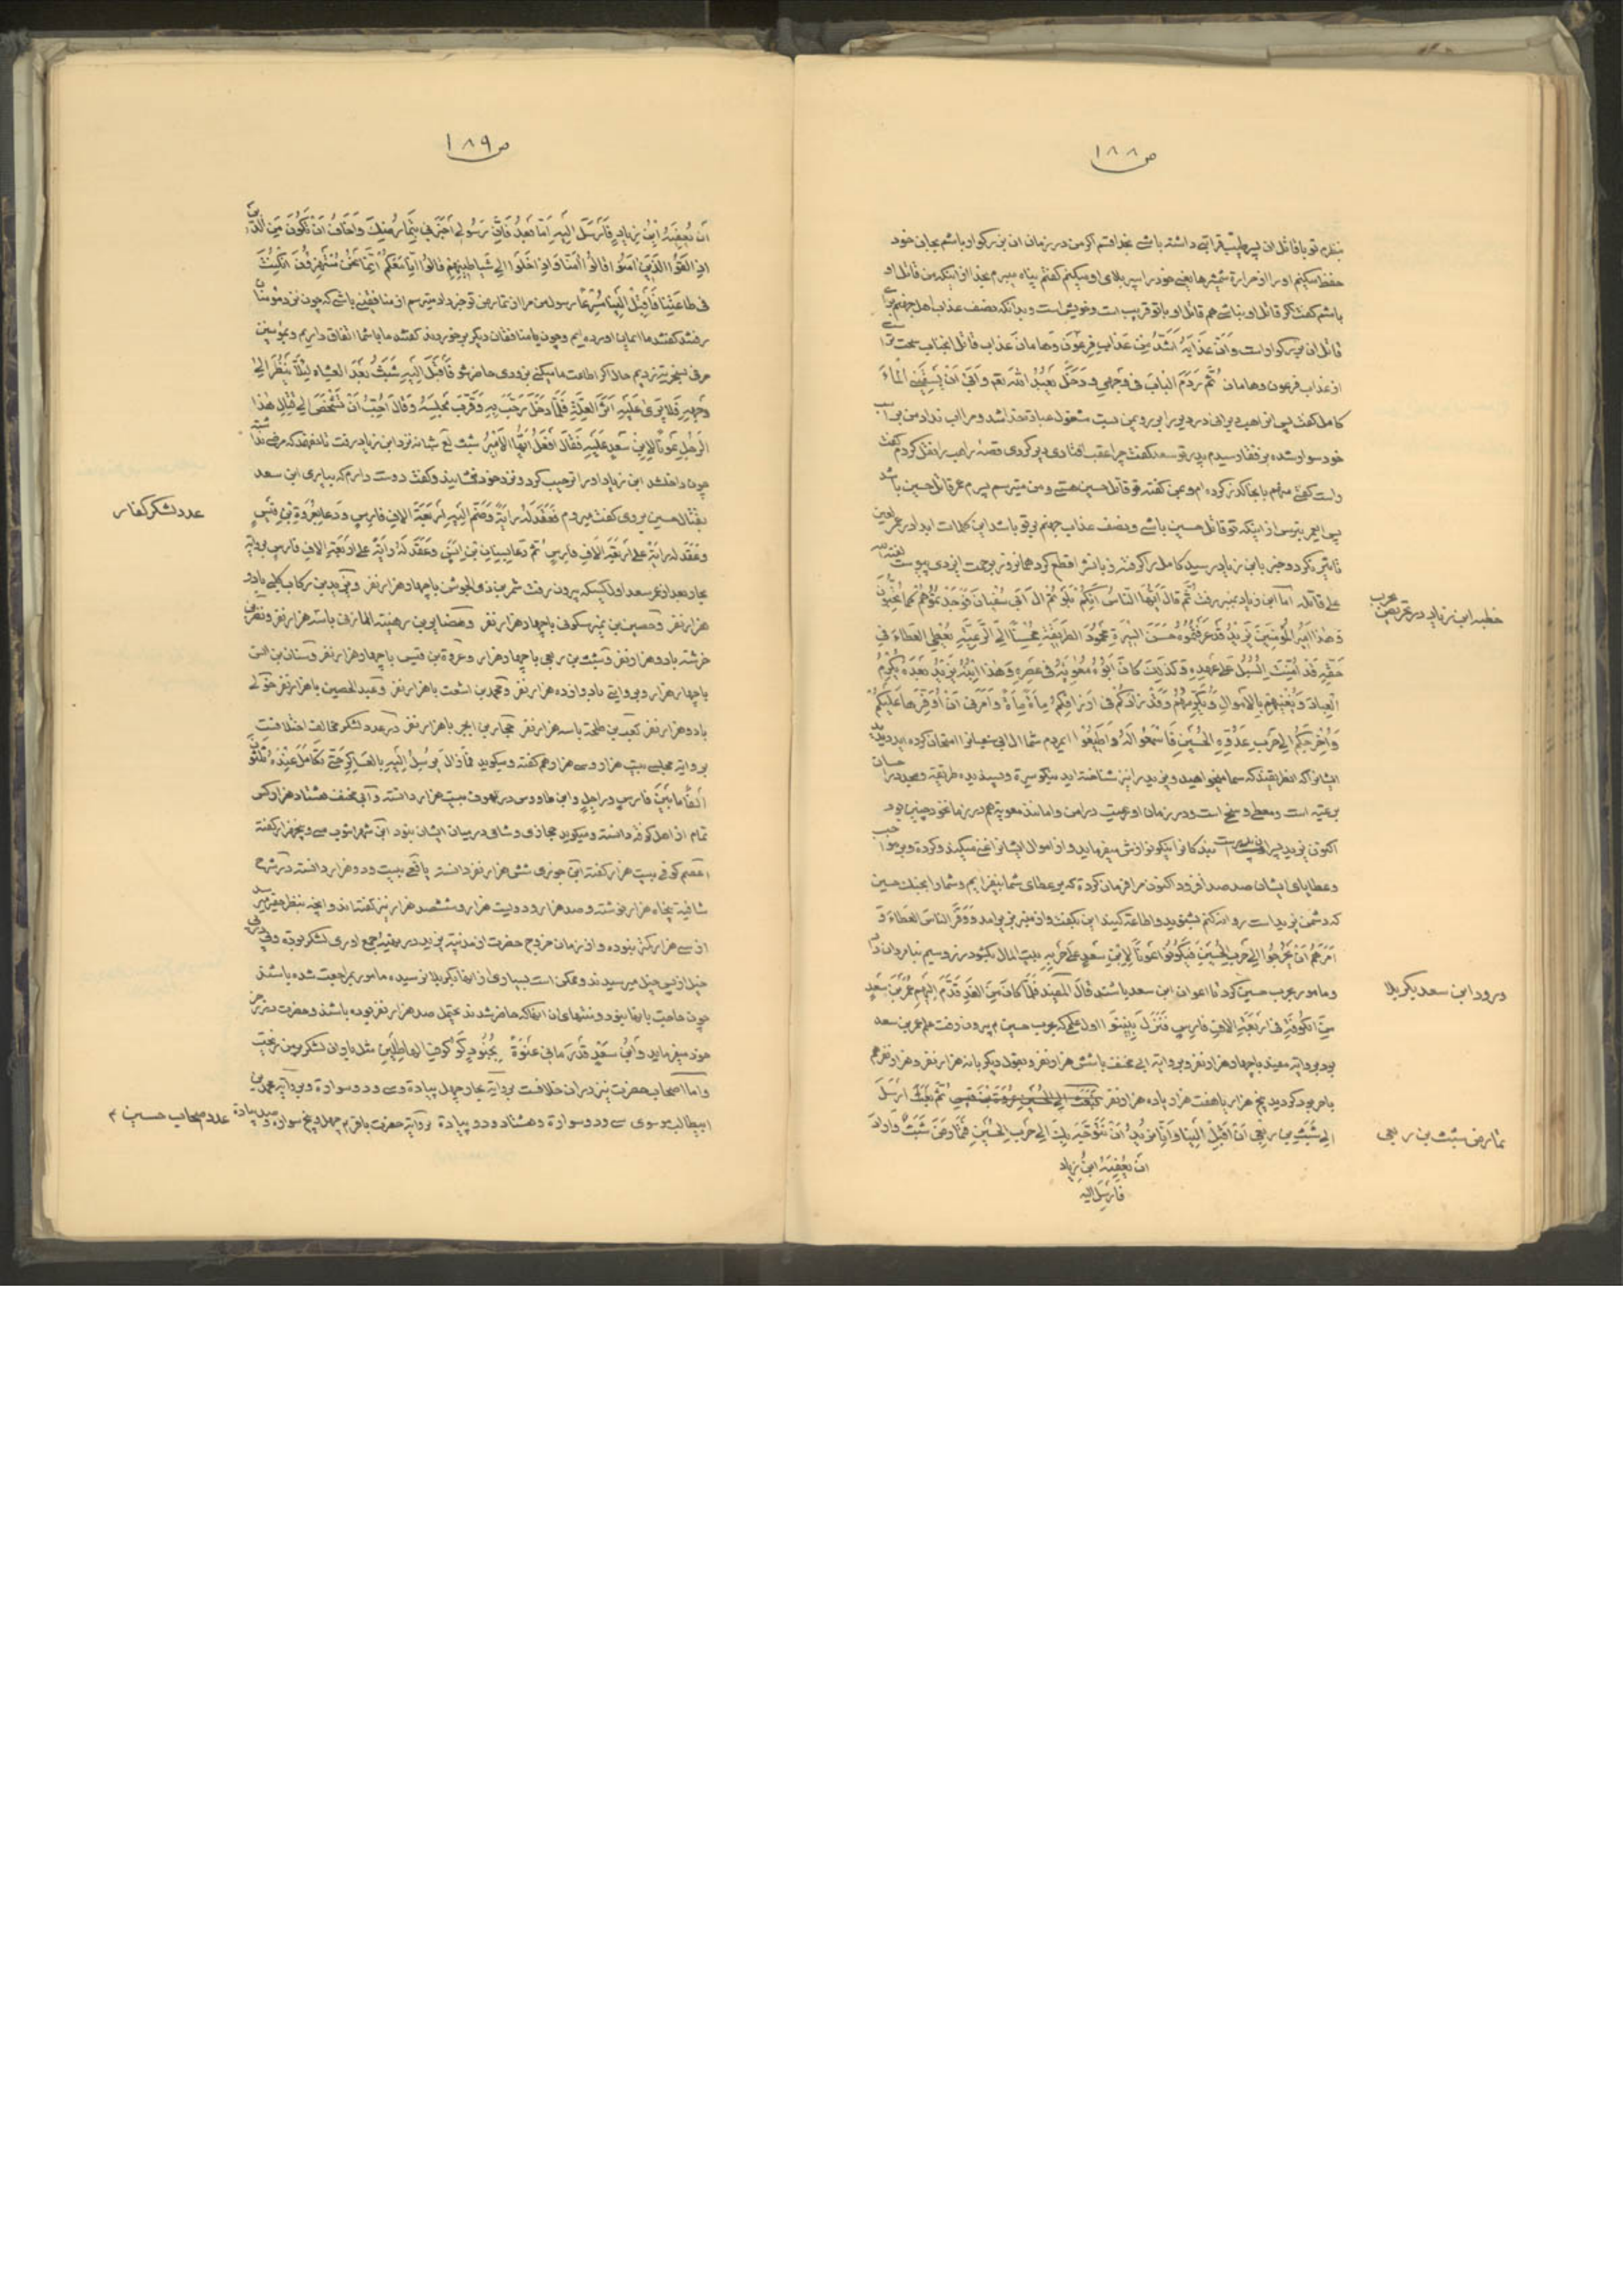 ص ۱۸۸
بنظرم تو با قاتل ان پسر پیغمبر قرابتی داشته باشی بخدا قسم اگر من در زمان ان بزرگوار باشم بجان خود
حفظ میکنم او را از حرارة شمشیرها یعنی خود را سپر بلای او میکنم گفتم پناه میبرم بخدا از اینکه من قاتل او
باشم گفت اگر قاتل او نباشی هم قاتل او با تو قریب است و خویش است و بدانکه نصف عذاب اهل جهنم برای
قاتل ان بزرگوار است وَاَنَّ عَذابَهُ اَشَدُّ مِن عَذابِ فِرعَونَ وَهامانَ عذاب قاتل انجناب سخت تر است
از عذاب فرعون و هامان ثُمَّ رَدَمَ البابَ فی وَجهی وَ دَخَلَ یَعبُدُ اللهَ تعالی وَ اَبی اَن یَسقِیَنی الماءَ
کامل گفت پس انراهب در دیر را بروی من بست مشغول عبادة خدا شد و مرا اب نداد من بر اسب
خود سوار شده برفقا رسیدم پدر تو سعد گفت چرا عقب افتادی دیر کردی قصهٔ راهب را نقل کردم گفت
راست گفتی منهم باینجا گذر کرده ام و بمن گفته تو قاتل حسین هستی و من میترسم پسرم عمر قاتل حسین باشد
پس ایعمر بترس از اینکه تو قاتل حسین باشی و نصف عذاب جهنم بر تو باشد این کلمات ابدا در عمر لعین
تاثیر نکرد و خبر بابن زیاد رسید کامل را گرفته زبانش را قطع کرد همانروز برحمت ایزدی پیوست لعنة الله
علی قاتله اما ابن زیاد بمنبر رفت ثُمَّ قالَ اَیُّهَا النّاسُ اِنَّکُم بَلَوتُم الَ اَبی سُفیانَ فَوَجَدتُمُوهُم کَما تُحِبُّونَ
وَهذا اَمیرُ المُؤمِنینَ یَزیدُ قَد عَرَفتُمُوهُ حَسَنَ السّیرَةِ مَحمُودَ الطَّریقَةِ مُحسِنًا اِلَی الرَّعِیَّةِ یُعطِی العَطاءَ فی
حَقِّهِ قَد اَمِنَتِ السُّبُلُ عَلی عَهدِهِ وَ کَذلِکَ کانَ اَبُوهُ مُعویَةُ فی عَصرِهِ وَهذا اِبنُهُ یَزیدُ بَعدَهُ یُکرِمُ
العِبادَ وَیُغنیهِم بِالاَموالِ وَ یُکرِمُهُم وَقَد زادَکُم فی اَرزاقِکُم مِاَةً مِاَةً وَ اَمَرَنی اَن اُوَفِّرَها عَلَیکُم
وَ اُخرِجَکُم اِلی حَربِ عَدُوِّهِ الحُسَینِ فَاسمَعُوا لَهُ وَاَطیعُوا ایمردم شما ال ابی سفیانرا امتحان کرده اید دیدید
ایشانرا که انطریقند که شما میخواهید و یزید را نیز شناخته اید نیکو سیرة و پسندیده طریقه و محسن
برعیة است و معطی و سخی است و در زمان او رعیت در امن و امانند معویه هم در زمان خود چنین بود
اکنون یزید پسر اوست بندکانرا نیکو نوازش میفرماید و از اموال ایشانرا غنی میکند و کرده و بر مواجب
و عطایای ایشان صد صد افزود اکنون مرا فرمان کرده که بر عطای شما بیفزایم و شما را بجنک حسین
که دشمن یزید است روانه کنم بشنوید و اطاعة کنید این بکفت و از منبر بزیر امد وَ وَفَّرَ النّاسَ العَطاءَ وَ
اَمَرَهُم اَن یَخرُجُوا اِلی حَربِ الحُسَینِ فَیَکُونُوا عَونًا لِابنِ سَعدٍ عَلی حَربِهِ بیت المال بکشود زر و سیم بنامردان داد
و مامور بحرب حسین کرد تا اعوان ابن سعد باشند قالَ المُفید فَلَمّا کانَ مِنَ الغَدِ قَدَّمَ اِلَیهِم عُمَرُ بنُ سَعدٍ
مِنَ الکُوفَةِ فی اَربَعَةِ الافِ فارِسٍ فَنَزَلَ بِنِینَوا اول علمی که بحرب حسین ع بیرون رفت علم عمر بن سعد
بود بروایة مفید با چهار هزار نفر و بروایة ابی مخنف با شش هزار نفر و بقول دیکر با نه هزار نفر و هزار نفر هم
با حر بود کردید پنج هزار یا هفت هزار یا ده هزار نفر ثُمَّ بَعَثَ اَرسَلَ
اِلی شَبَثِ بنِ رِبعی اَن اَقبِل اِلَینا وَ اِنّا نُریدُ اَن نَتَوَجَّهَ بِکَ اِلی حَربِ الحُسَینِ فَتَمارَضَ شَبَثٌ وَ اَرادَ
ان یُعفِیَهُ ابنُ زِیاد
فَاَرسَلَ الیه
خطبه ابن زیاد در تحریص بحرب
ورود ابن سعد بکربلا
تمارض شبث بن ربعی
ص ۱۸۹
اَن یُعفِیَهُ اِبنُ زِیادٍ فَاَرسَلَ اِلَیهِ اَمّا بَعدُ فَاِنَّ رَسُولی اَخبَرَنی بِتَمارُضِکَ وَ اَخافُ اَن تَکُونَ مِنَ الَّذینَ
اِذا لَقُوا الَّذینَ امَنُوا قالُوا امَنّا وَ اِذا خَلَوا اِلی شَیاطینِهِم قالُوا اِنّا مَعَکُم اِنَّما نَحنُ مُستَهزِؤُنَ اِن کُنتَ
فی طاعَتِنا فَاَقبِل اِلَینا مُسرِعًا رسول من مرا از تمارض تو خبر داد میترسم از منافقین باشی که چون نزد مؤمنان
رفتند گفتند ما ایمان اورده ایم و چون با منافقان دیگر برخوردند گفتند ما با شما اتفاق داریم و بمؤمنین
حرفی بسخریه زدیم حال اگر اطاعت ما میکنی بزودی حاضر شو فَاَقبَلَ اِلَیهِ شَبَثُ بَعدَ العِشاءِ لِئَلّا یَنظُرَ اِلی
وَجهِهِ فَلا یَری عَلَیهِ اَثَرَ العِلَّةِ فَلَمّا دَخَلَ رَحَّبَ بِهِ وَ قَرَّبَ مَجلِسَهُ وَ قالَ اُحِبُّ اَن تَشخَصَ اِلی قِتالِ هذَا
الرَّجُلِ عَونًا لِابنِ سَعدٍ عَلَیهِ فَقالَ اَفعَلُ اَیُّهَا الاَمیرُ شبث شبانه نزد ابن زیاد رفت تا نفهمد که مرض نداشته
چون داخل شد ابن زیاد او را ترحیب کرد و نزد خود نشانید و گفت دوست دارم که بیاری ابن سعد
بقتال حسین بروی گفت میروم فَعَقَدَ لَهُ رایَةً وَ ضَمَّ اِلَیهِ اَربَعَةَ الافِ فارِسٍ وَ دَعا بِعُروَةِ بنِ قَیسٍ
وَ عَقَدَ لَهُ رایَةً عَلی اَربَعَةِ الافِ فارِسٍ ثُمَّ دَعا بِسِنانِ بنِ اَنَسٍ وَ عَقَدَ لَهُ رایَةً عَلی اَربَعَةِ الافِ فارِسٍ بروایة
بحار بعد از عمر سعد اول کسیکه بیرون رفت شمر بن ذی الجوشن با چهار هزار نفر و یزید بن رکاب کلبی با دو
هزار نفر و حصین بن نمیر سکونی با چهار هزار نفر و مضایر بن رهینه المازنی با سه هزار نفر و نصر بن
خرشه با دو هزار نفر و شبث بن ربعی با چهار هزار و عروة بن قیس با چهار هزار نفر و سنان بن انس
با چهار هزار و بروایتی با دوازده هزار نفر و محمد بن اشعث با هزار نفر و عبدالحصین با هزار نفر خولی
با دو هزار نفر کعب بن طلحة با سه هزار نفر حجار بن ابجر با هزار نفر در عدد لشکر مخالف اختلافست
بروایة مجلسی بیست هزار و سی هزار هم گفته و میکوید فَمازالَ یُرسِلُ اِلَیهِ بِالعَساکِرِ حَتّی تَکامَلَ عِندَهُ ثَلثُونَ
اَلفًا مابَینَ فارِسٍ وَ راجِلٍ و ابن طاووس در لهوف بیست هزار دانسته و ابی مخنف هشتاد هزار کس
تمام از اهل کوفه دانسته و میکوید حجازی و شامی در میان ایشان نبود ابن شهراشوب سی و پنجهزار گفته
اعثم کوفی بیست هزار گفته ابن جوزی شش هزار نفر دانسته یافعی بیست و دو هزار دانسته در شرح
شافیة پنجاه هزار نوشته و صد هزار و دویست هزار و ششصد هزار نیز گفته اند و انچه بنظر حقیر میرسد
از سی هزار کمتر نبوده و از زمان خروج حضرت از مدنیه یزید در تهیهٔ جمع اوری لشکر بوده و فوج
خیل از پس خیل میرسیدند و ممکن است بسیاری از انها بکربلا نرسیده مامور بمراجعت شده باشند
چون حاجت بانها نبود و منتهای ان انها که حاضر شدند محتمل صد هزار نفر بوده باشد و حضرت در رجز
خود میفرماید وَ اِبنُ سَعدٍ قَد رَمانی عَنوَةً بِجُنُودٍ کَوُکُوفِ الهاطِلینَ مثل باران لشکر بر من ریخت
و اما اصحاب حضرت نیز در ان خلافست بروایة بحار چهل پیاده و سی و دو سواره و بروایة محمد بن
ابیطالب موسوی سی و دو سواره و هشتاد و دو پیاده بروایة حضرت باقر ع چهل و پنج سواره و صد پیاده
عدد لشکر کفار
عدد اصحاب حسین ع